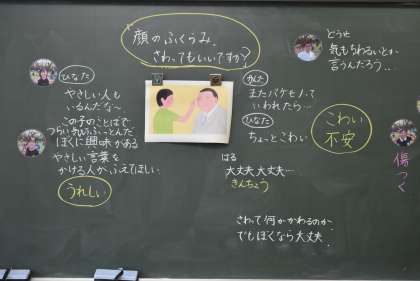 顔のふくらみ、
さわってもいいですか?
ひなた
やさしい人も
いるんだな〜
この子のことばで
つらい気もちふっとんだ
ぼくに興味がある
やさしい言葉を
かける人がふえてほしい
うれしい
かんた
またバケモノって
いわれたら…
ひなた
ちょっとこわい
はる
大丈夫大丈夫…
きんちょう
さわって何かかわるのか
でもぼくなら大丈夫
どうせ
気もちわるいとか
言うんだろう…
こわい
不安
傷つく